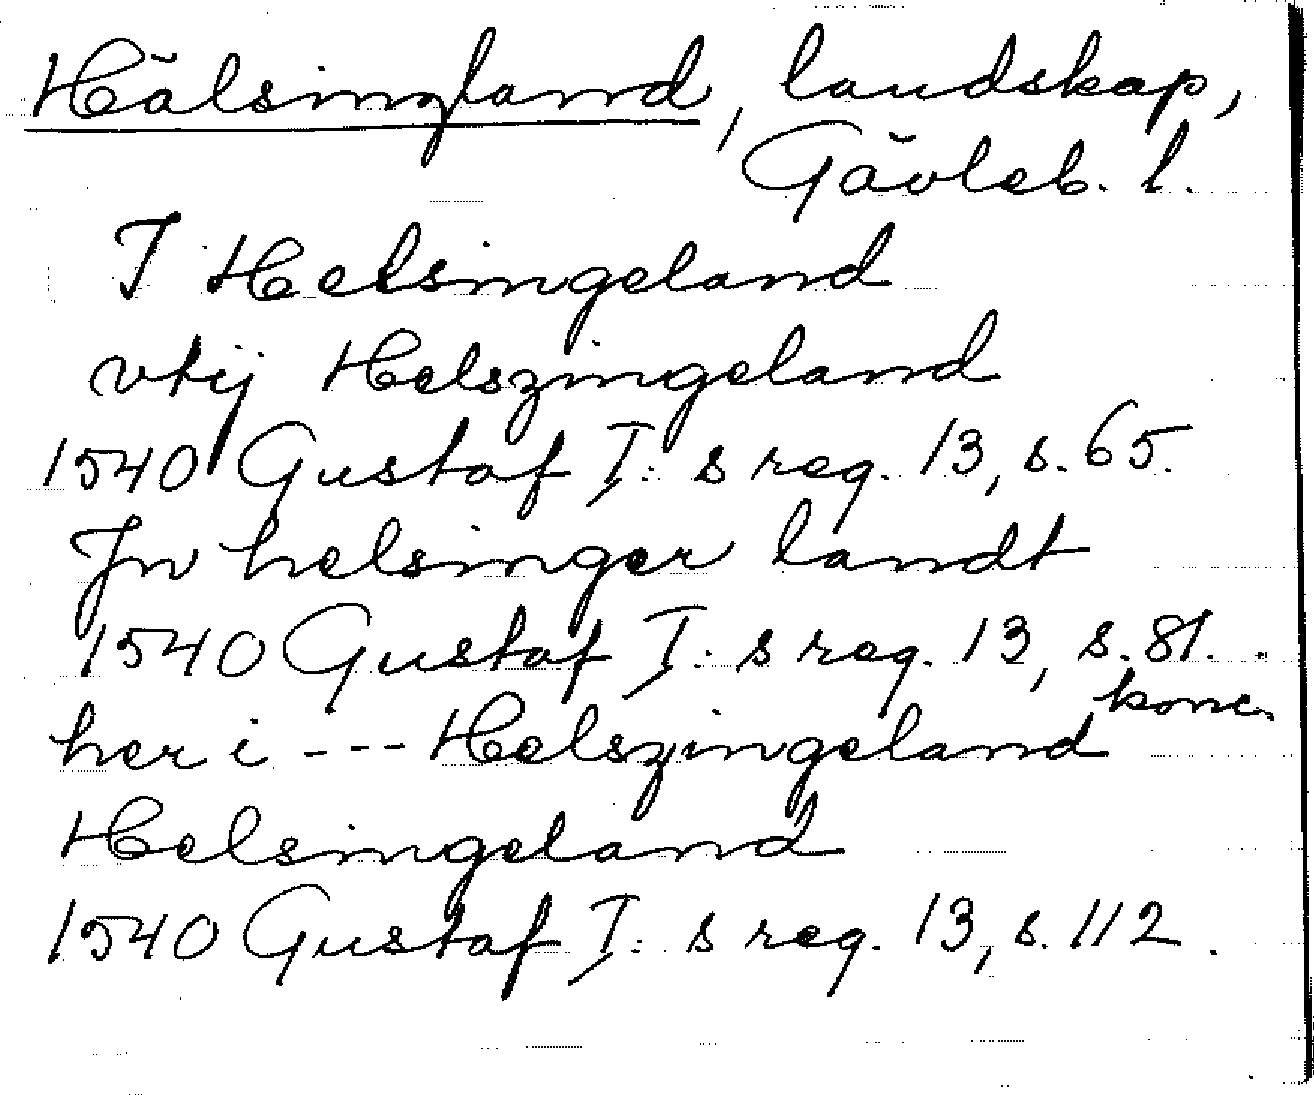 Hälsingland, landskap,
Gävleb. l.
I Helsingeland
vtij Helszingeland
1540 Gustaf I:s reg. 13, s. 65.
Jn helsinger landt
1540 Gustaf I:s reg. 13, s. 81.
her i --- Helszingeland
Helsingeland
1540 Gustaf I:s reg. 13, s. 112.